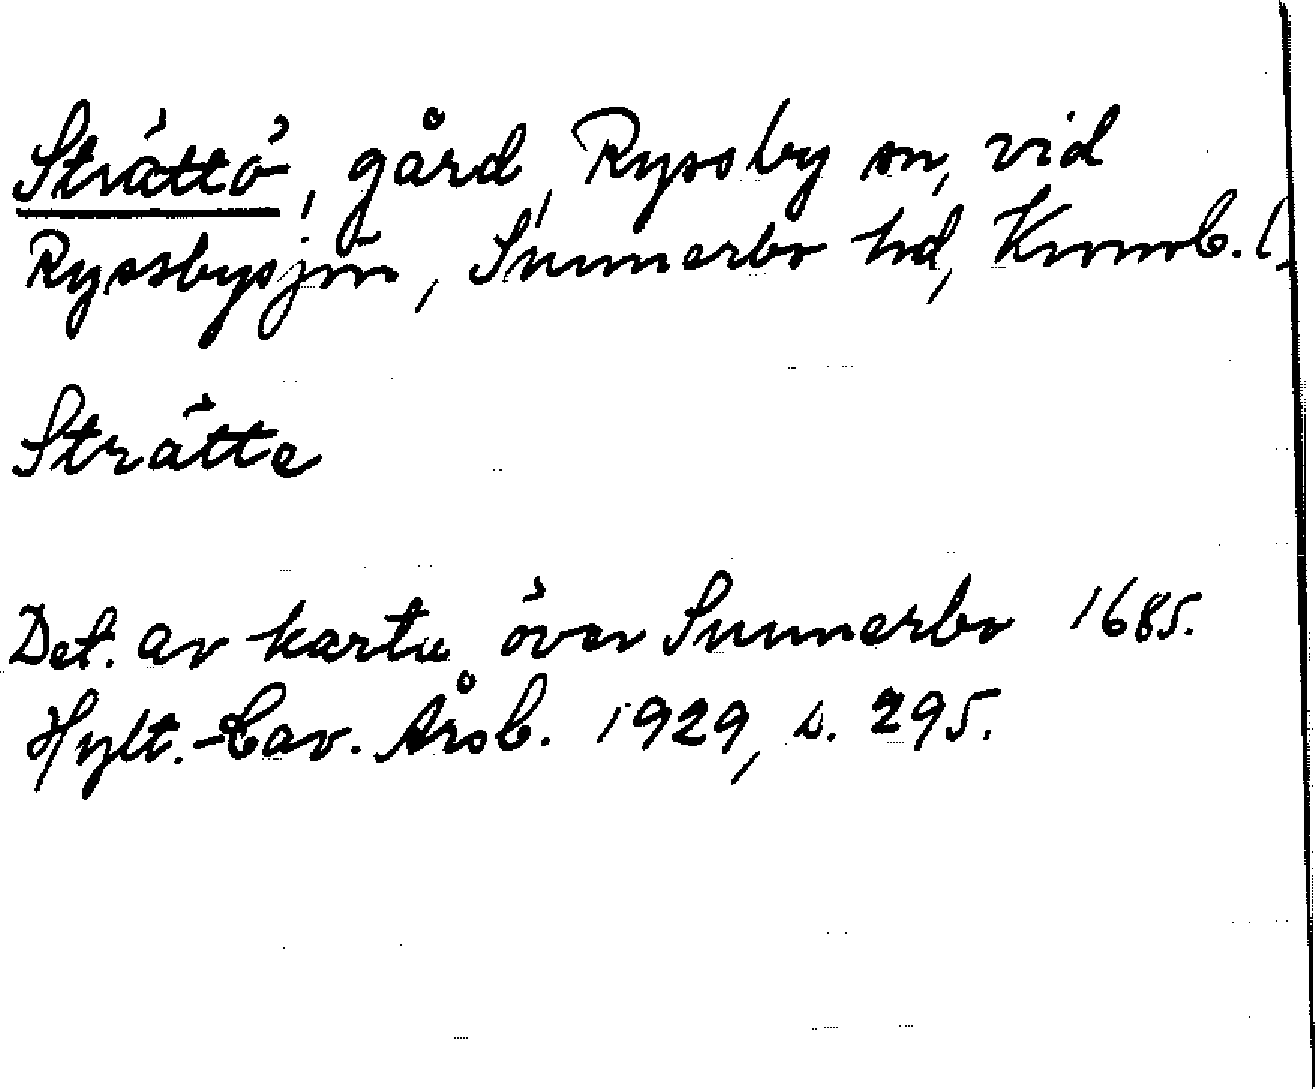 Strättö, gård, Ryssby sn, vid
Ryssbysjön, Sunnerbo hd, Kronob. l.
Strätte
Det. av karta över Sunnerbo 1685.
Hylt.-Cav. Årsb. 1929, s. 295.